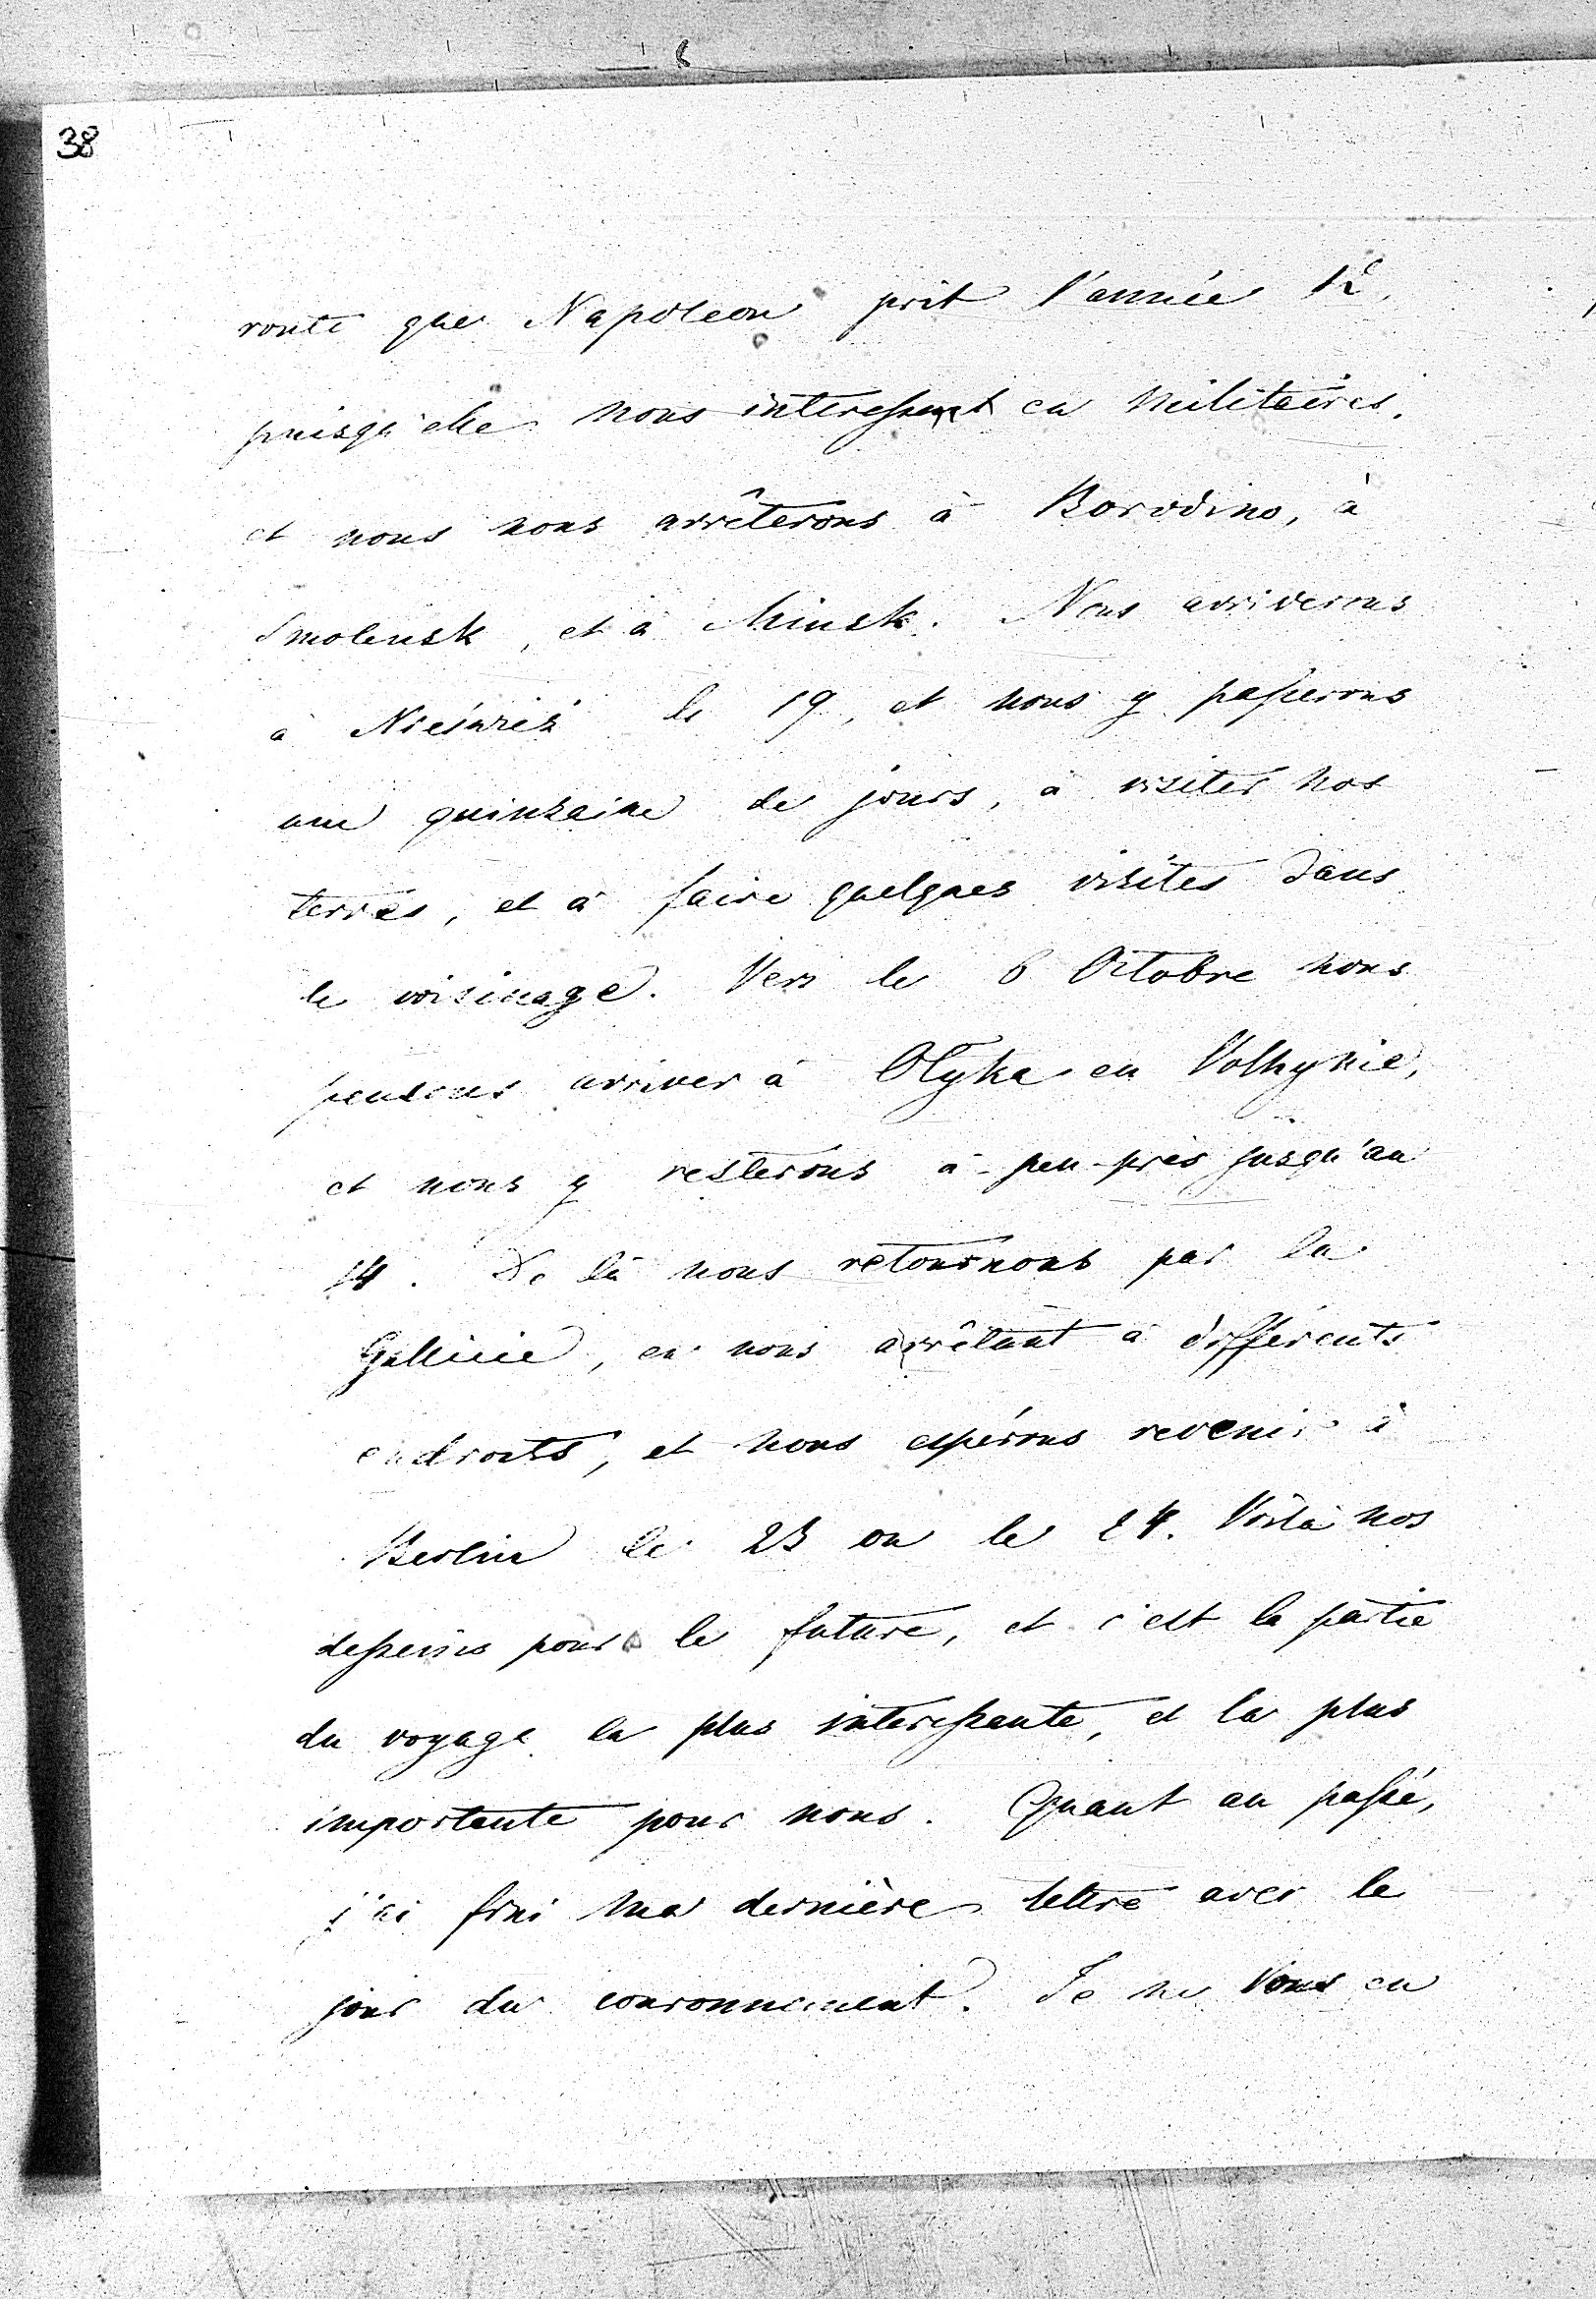 38
route que Napoleon prit l'année 12,
puisqu'elle nous interessent en militaires,
et nous nous arrêterons à Borodino, à
Smolensk, et à Minsk. Nous arriverons
à Nieśwież le 19, et nous y passerons
une quinzaine de jours, à visiter nos
terres, et à faire quelques visites dans
le voisinage. Vers le 6 Octobre nous
pensons arriver à Olyka en Volhynie,
et nous y resterons à-peu-près jusqu'au
14. De là nous retournons par la
Gallicie, en nous arrêtant à différents
endroits, et nous espérons revenir à
Berlin le 23 ou le 24. Voilà nos
desseins pour le future, et c'est la partie
du voyage la plus interessante, et la plus
importante pour nous. Quant au passé,
j'ai fini ma dernière lettre avec le
jour du couronnement. Je ne Vous en